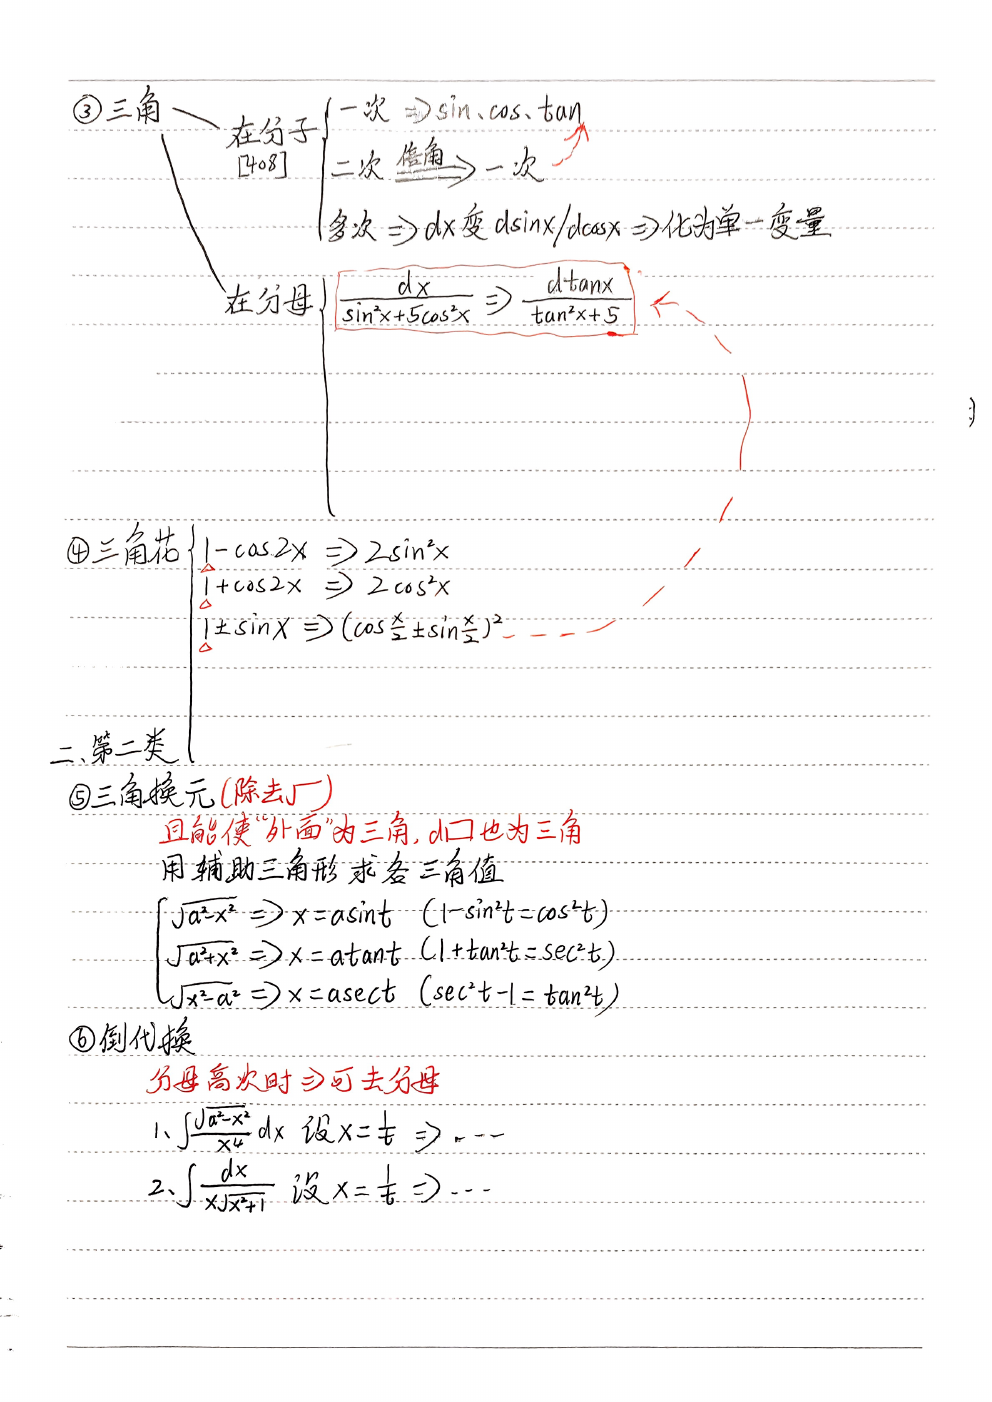 ③三角
在分子
[408]
一次 ⇒ sin、cos、tan
二次 倍角⇒ 一次
多次 ⇒ dx变dsinx/dcosx ⇒ 化为单一变量
在分母 dx/(sin²x+5cos²x) ⇒ dtanx/(tan²x+5)
④三角花
1-cos2x ⇒ 2sin²x
1+cos2x ⇒ 2cos²x
1±sinx ⇒ (cos x/2 ± sin x/2)²
二、第二类
⑤三角换元(除去√)
且能使“外面”为三角,d口也为三角
用辅助三角形求各三角值
√(a²-x²) ⇒ x=asint (1-sin²t=cos²t)
√(a²+x²) ⇒ x=atant (1+tan²t=sec²t)
√(x²-a²) ⇒ x=asect (sec²t-1=tan²t)
⑥倒代换
分母高次时⇒可去分母
1、∫√(a²-x²)/x⁴ dx 设x=1/t ⇒ ....
2、∫dx/(x√(x²+1)) 设x=1/t ⇒ ...